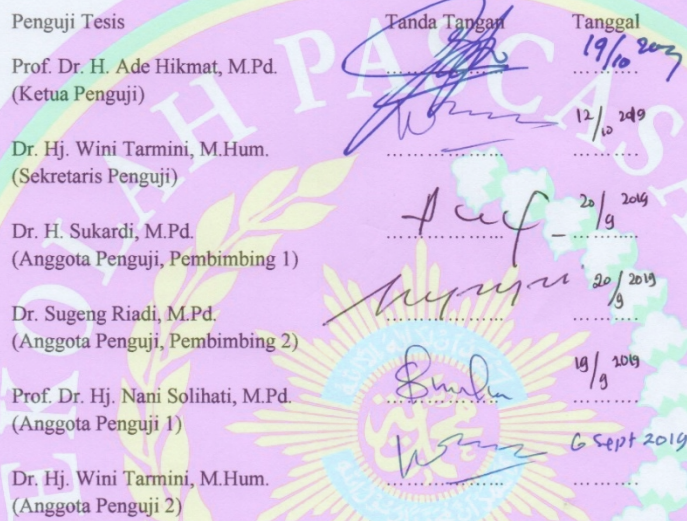 Penguji Tesis Tanda Tangan Tanggal
Prof. Dr. H. Ade Hikmat, M.Pd. 19/10 2019
(Ketua Penguji)
12/10 2019
Dr. Hj. Wini Tarmini, M.Hum.
(Sekretaris Penguji)
20/9 2019
Dr. H. Sukardi, M.Pd.
(Anggota Penguji, Pembimbing 1)
20/9 2019
Dr. Sugeng Riadi, M.Pd.
(Anggota Penguji, Pembimbing 2)
19/9 2019
Prof. Dr. Hj. Nani Solihati, M.Pd.
(Anggota Penguji 1)
6 Sept 2019
Dr. Hj. Wini Tarmini, M.Hum.
(Anggota Penguji 2)
EKOLAH PASCASA